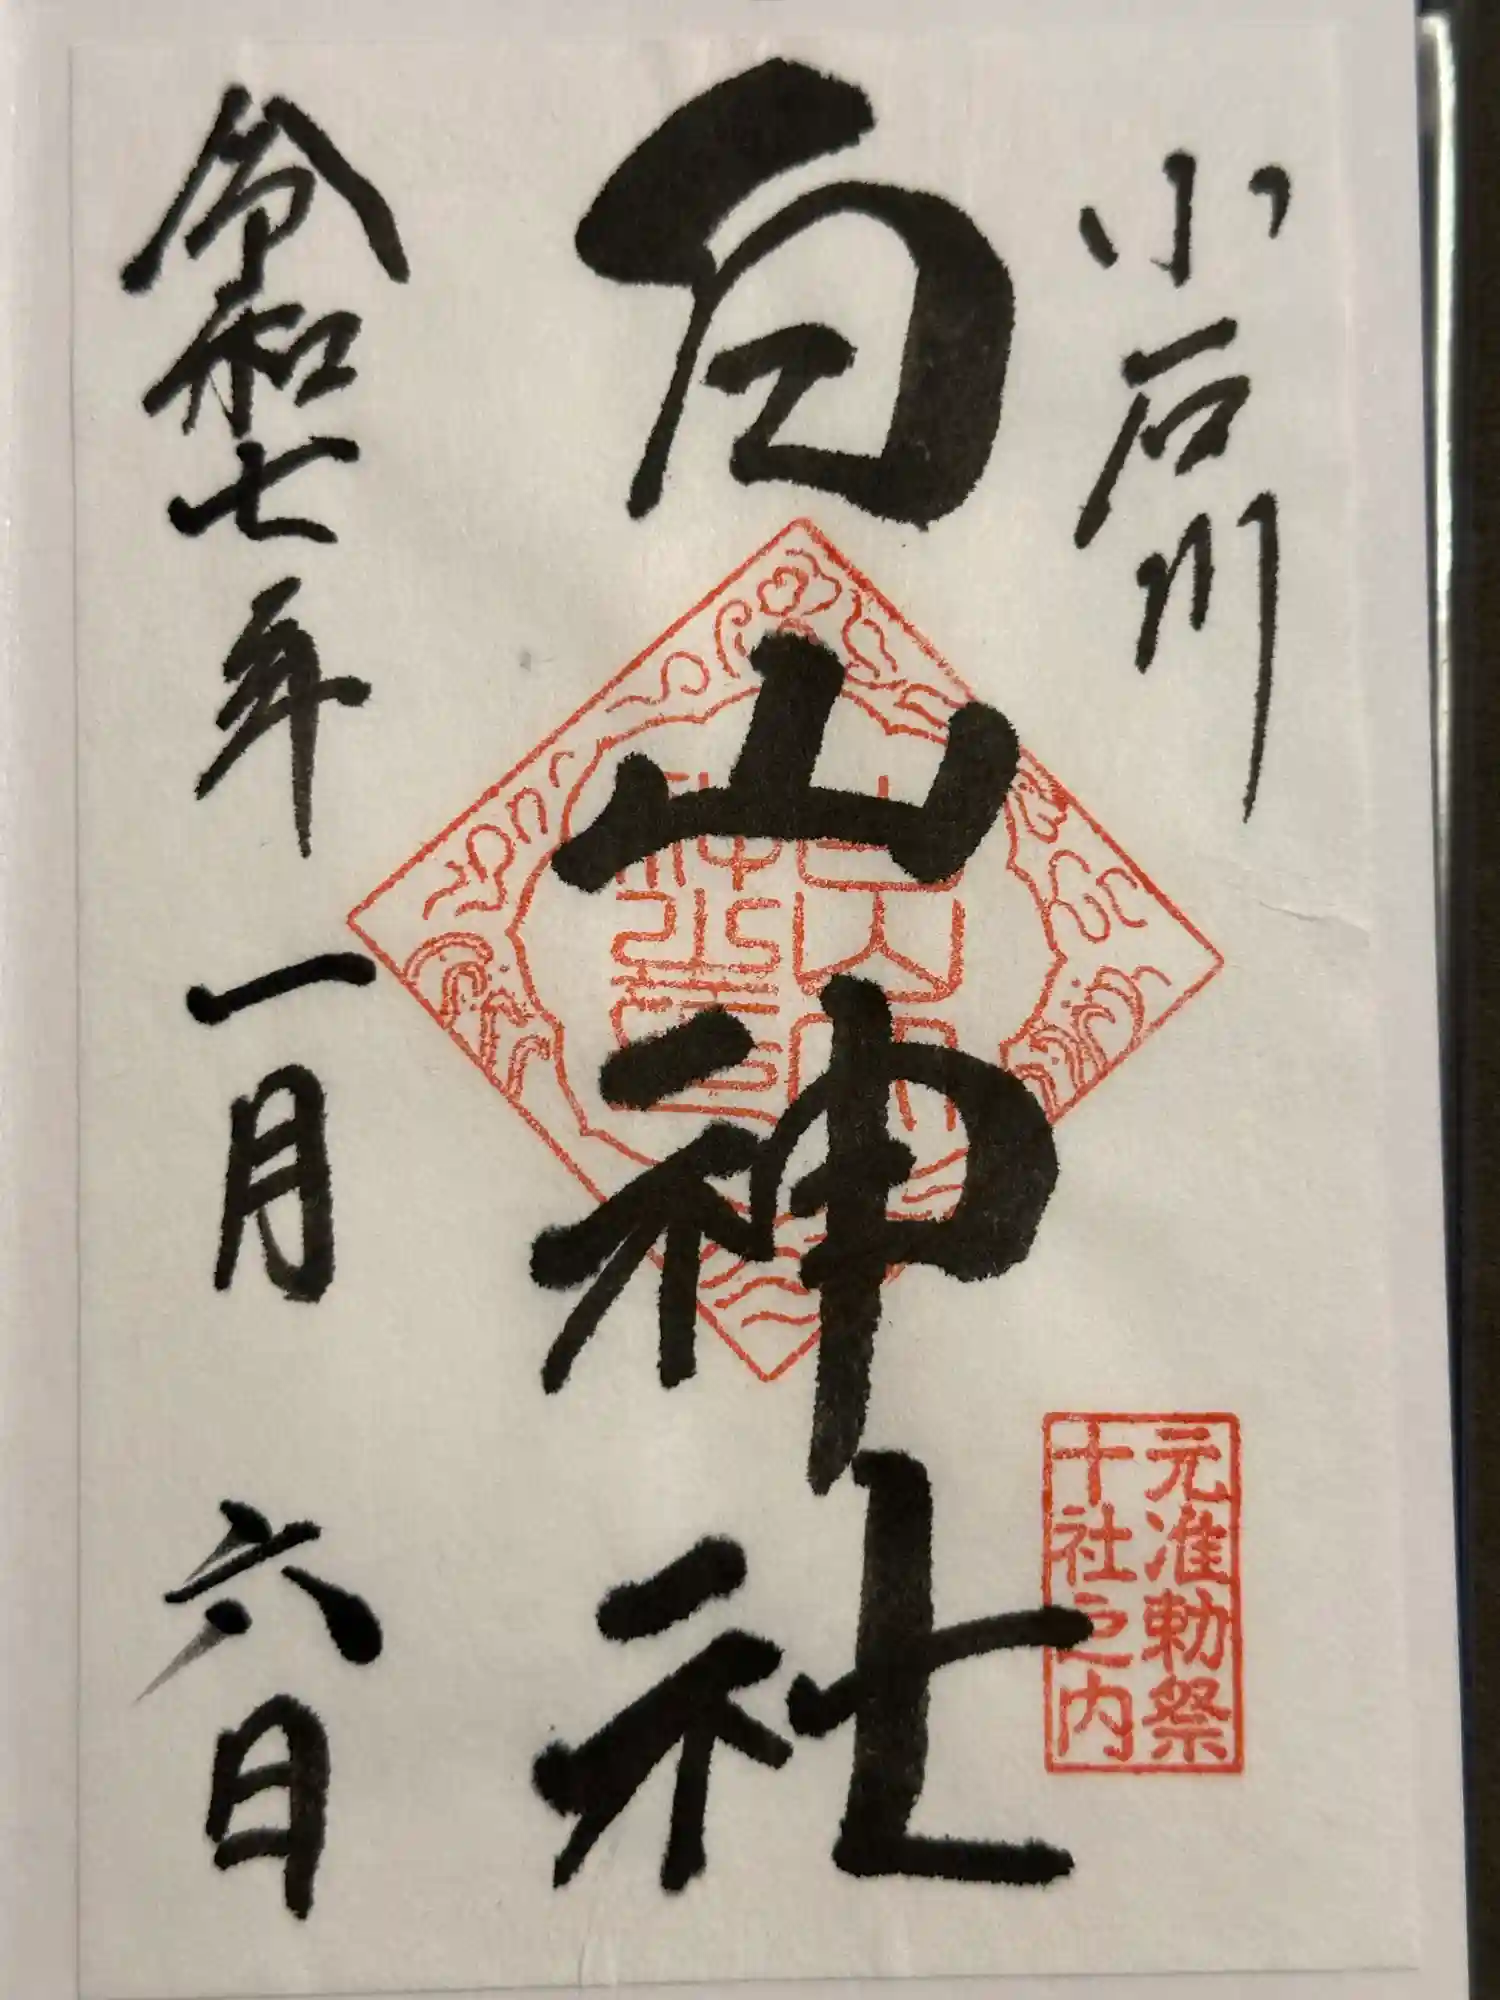 小石川
白山神社
元准勅祭
十社之内
令和七年一月六日